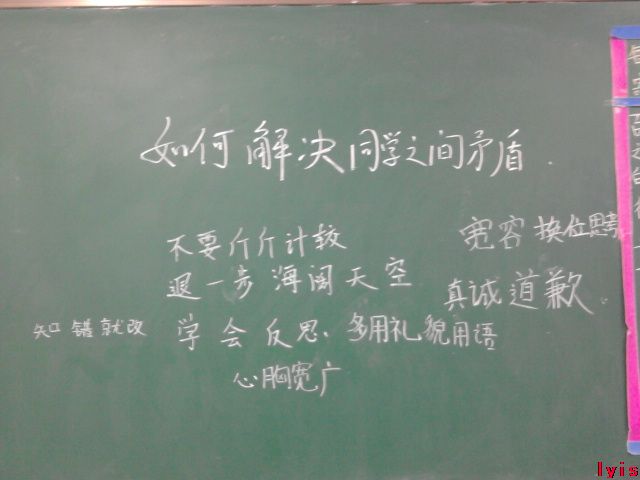 如何解决同学之间矛盾.
不要斤斤计较
宽容 换位思考
退一步海阔天空
真诚道歉.
知错就改
学会反思.
多用礼貌用语
心胸宽广
lyis